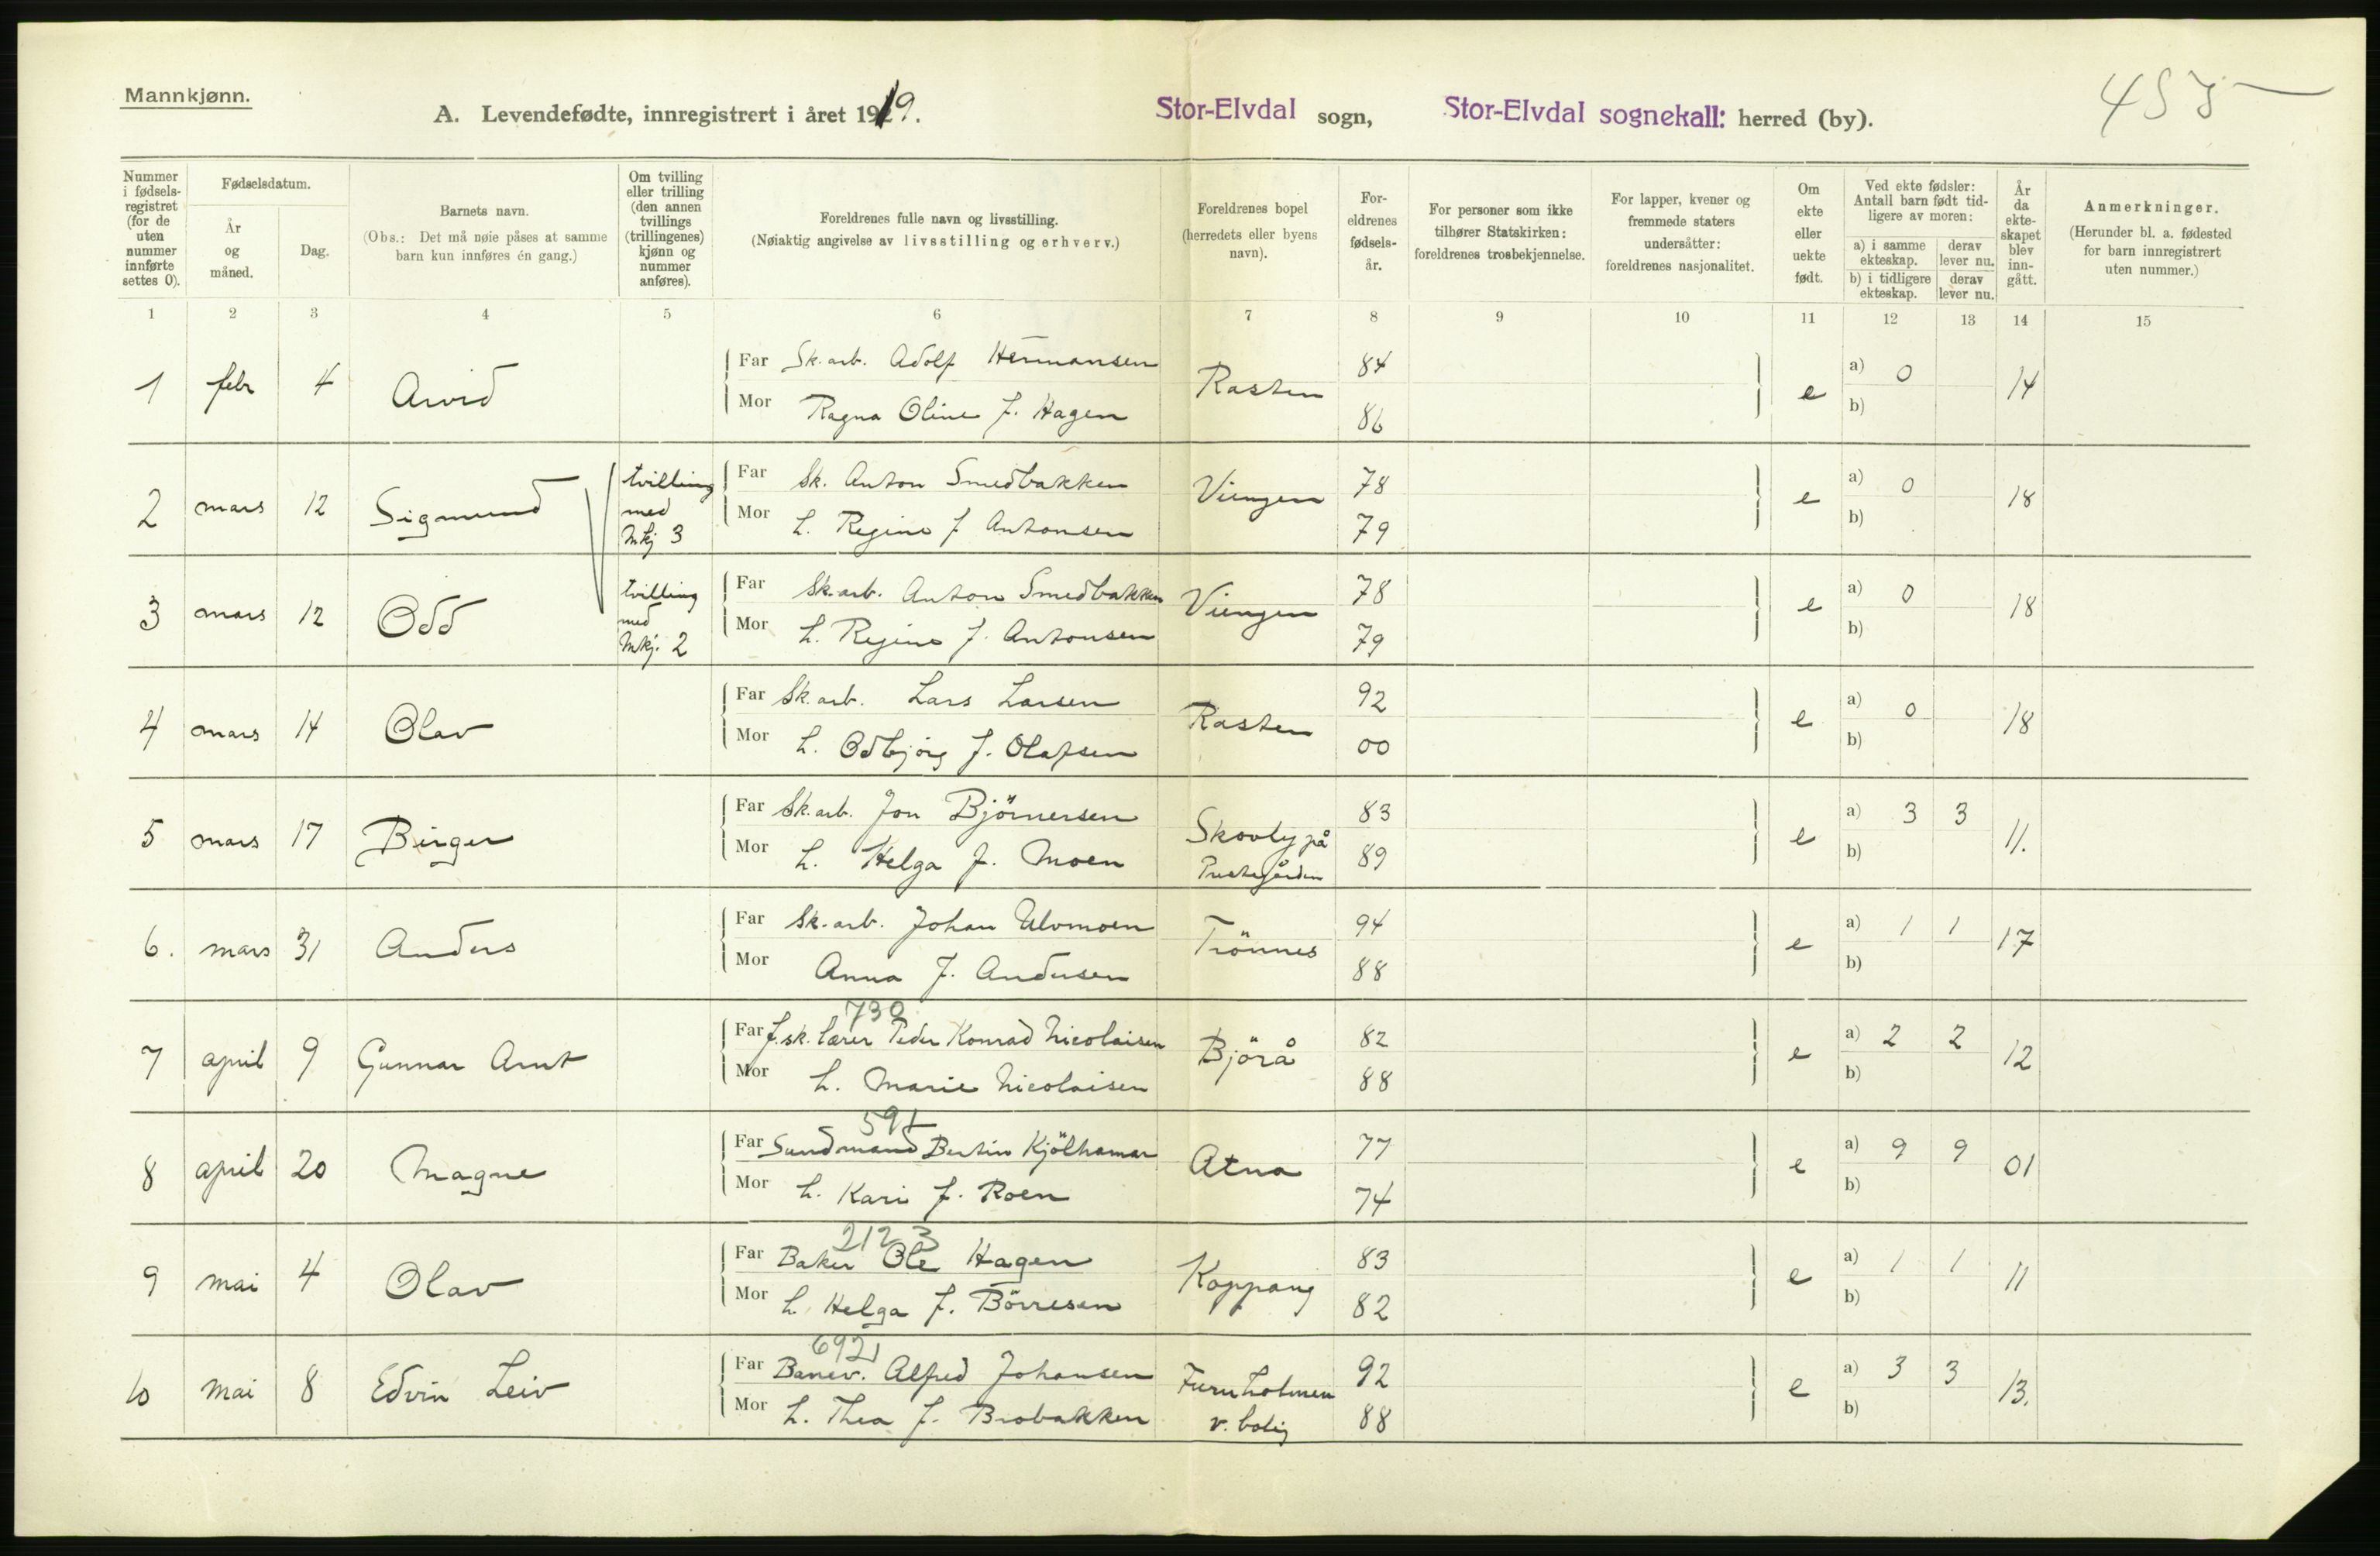 Mannkjønn.
A. Levendefødte, innregistrert i året 1919. Stor-Elvdal sogn, Stor-Elvdal sognekall: herred (by).
Nummer i fødsels-registret (for de uten nummer innførte settes 0).
Fødselsdatum.
År og måned.
Dag.
Barnets navn.
(Obs.: Det må nøie påses at samme barn kun innføres én gang.)
Om tvilling eller trilling (den annen tvillings (trillingenes) kjønn og nummer anføres).
Foreldrenes fulle navn og livsstilling.
(Nøiaktig angivelse av livsstilling og erhverv.)
Foreldrenes bopel (herredets eller byens navn).
For-eldrenes fødsels-år.
For personer som ikke tilhører Statskirken: foreldrenes trosbekjennelse.
For lapper, kvener og fremmede staters undersåtter: foreldrenes nasjonalitet.
Om ekte eller uekte født.
Ved ekte fødsler: Antall barn født tid-ligere av moren:
a) i samme ekteskap. derav lever nu.
b) i tidligere ekteskap. derav lever nu.
År da ekte-skapet blev inn-gått.
Anmerkninger.
(Herunder bl. a. fødested for barn innregistrert uten nummer.)
1 2 3 4 5 6 7 8 9 10 11 12 13 14 15
1 febr 4 Arvid Far Sk.arb. Adolf Hermansen Rasten 84 e a) 0 14
Mor Ragna Oline f. Hagen 86 b)
2 mars 12 Sigmund tvilling med Mkj 3 Far Sk. Anton Smedbakken Viengen 78 e a) 0 18
Mor h. Regine f Antonsen 79 b)
3 mars 12 Odd tvilling med Mkj. 2 Far Sk.arb. Anton Smedbakken Viengen 78 e a) 0 18
Mor h. Regine f. Antonsen 79 b)
4 mars 14 Olav Far Sk.arb. Lars Larsen Rasten 92 e a) 0 18
Mor h. Odbjörg f. Olafsen 00 b)
5 mars 17 Birger Far Sk.arb. Jon Björnersen Skovly på Prestegården 83 e a) 3 3 11.
Mor h. Helga f. Moen 89 b)
6. mars 31 Anders Far Sk.arb. Johan Ulvmoen Trönnes 94 e a) 1 1 17
Mor Anna f. Andersen 88 b)
730
7 april 9 Gunnar Arnt Far f.sk. lærer Peder Konrad Nicolaisen Björå 82 e a) 2 2 12
Mor h. Marie Nicolaisen 88 b)
8 april 20 Magne Far Sundmand Bertin Kjölhamar Atna 77 e a) 9 9 01
Mor h. Kari f. Roen 74 b)
2123
9 mai 4 Olav Far Baker Ole Hagen Koppang 83 e a) 1 1 11
Mor h. Helga f. Börresen 82 b)
6921
10 mai 8 Edvin Leiv Far Banev. Alfred Johansen Furuholmen v. bolig 92 e a) 3 3 13.
Mor h. Thea f. Brobakken 88 b)